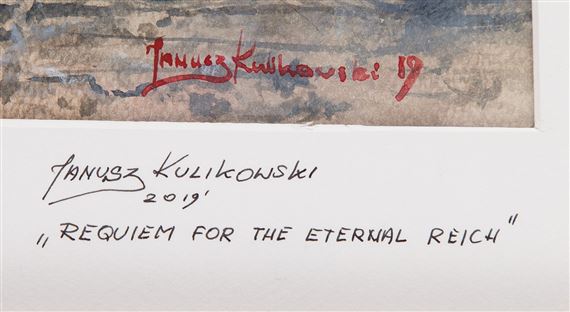 Janusz Kulikowski 19
JANUSZ KULIKOWSKI
2019'
„REQUIEM FOR THE ETERNAL REICH"